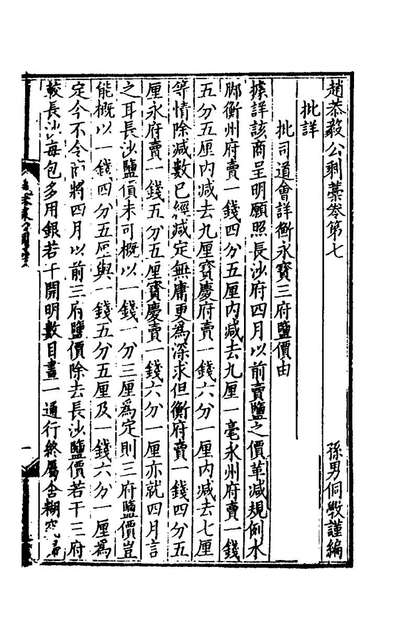 趙恭毅公剩藁卷第七
孫男侗斆謹編
批詳
批司道會詳衡永寶三府鹽價由
據詳該商呈明願照長沙府四月以前賣鹽之價革減規例水
脚衡州府賣一錢四分五厘内減去九厘一毫永州府賣一錢
五分五厘内減去九厘寳慶府賣一錢六分一厘内減去七厘
等情除減數已經減定無庸更為深求但衡府賣一錢四分五
厘永府賣一錢五分五厘寳慶賣一錢六分一厘亦就四月言
之耳長沙鹽價未可概以一錢一分三厘為定則三府鹽價豈
能概以一錢四分五厘與一錢五分五厘及一錢六分一厘為
定今不令前將四月以前三府鹽價除去長沙鹽價若干三府
較長沙每包多用銀若干開明數目畫一通行終屬含糊究